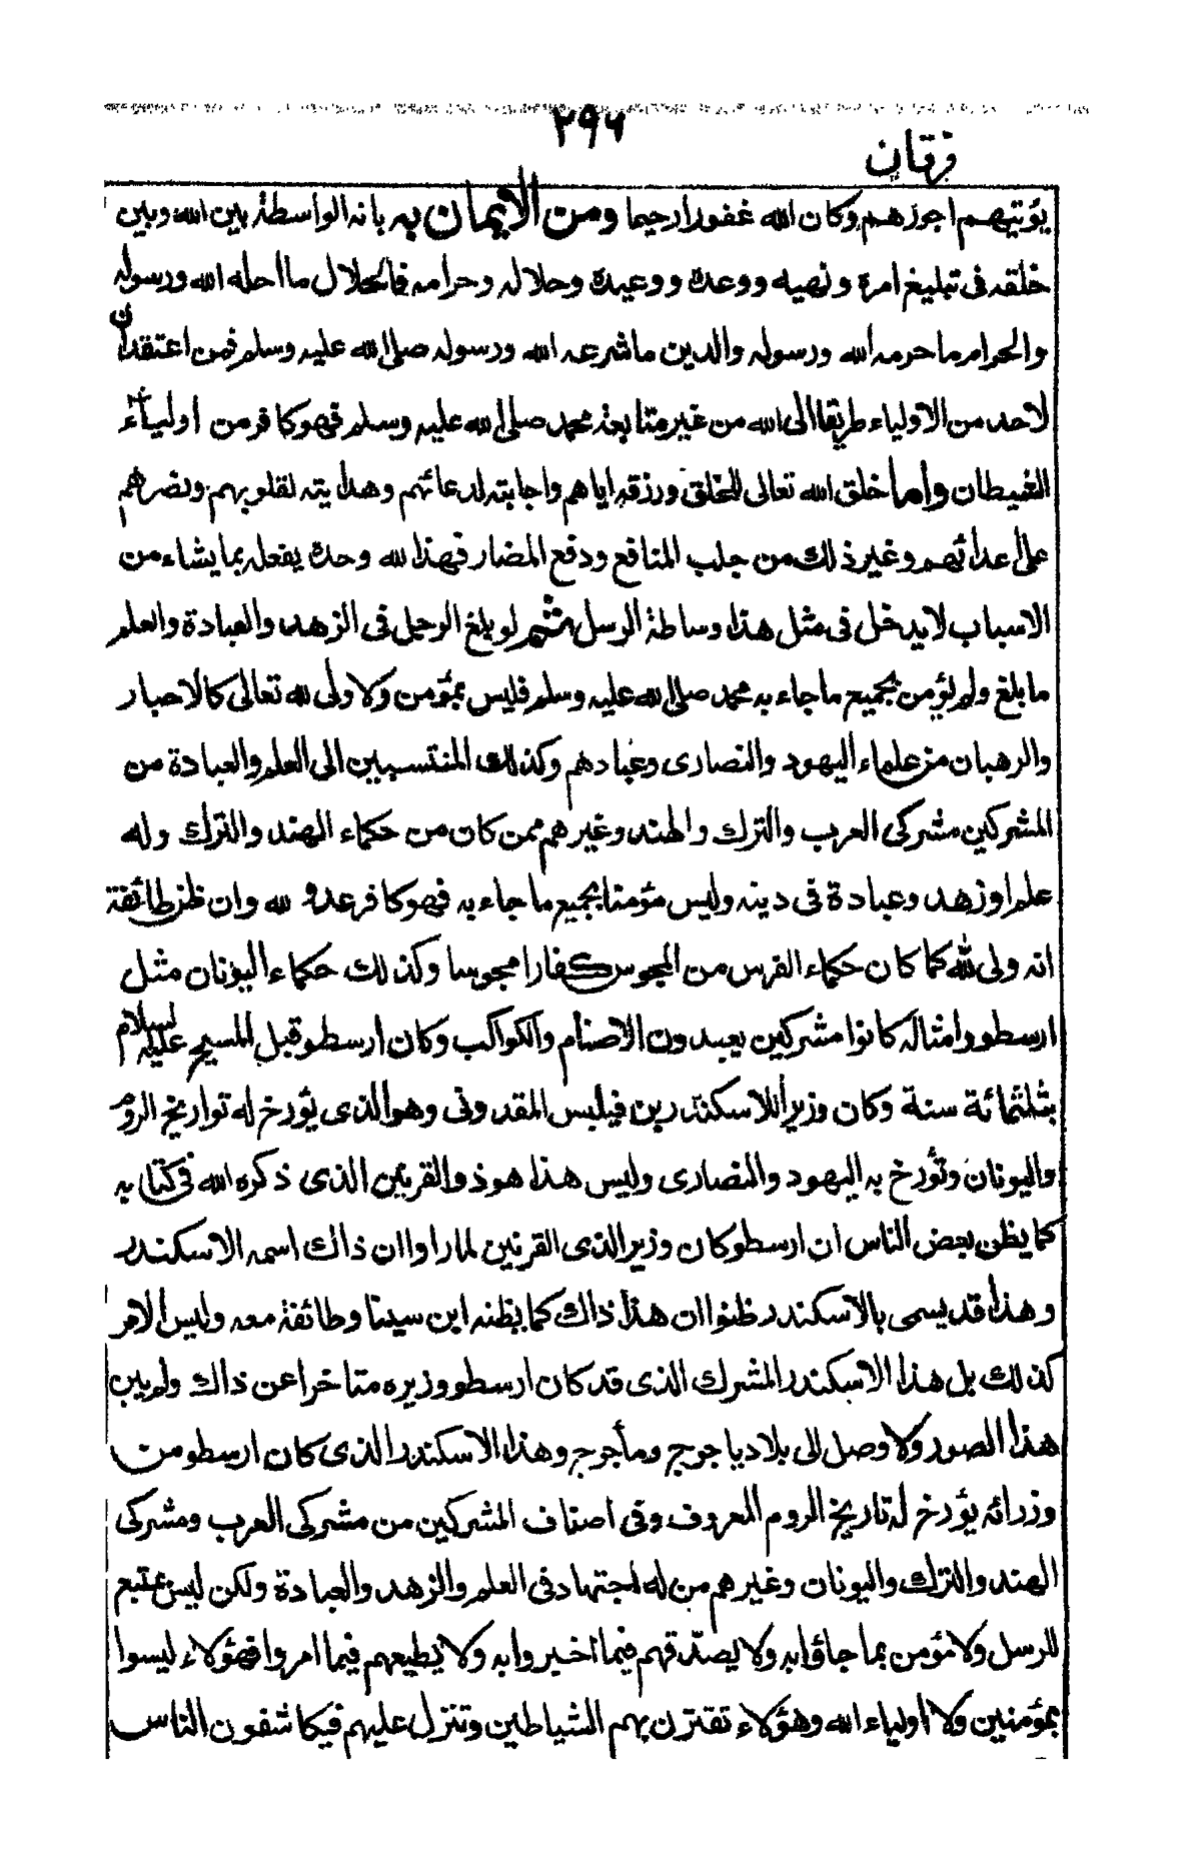 ٢٩٦
فرقان
يؤتيهم اجورهم وكان الله غفورا رحيما ومن الايمان به بانه الواسطة بين الله وبين
خلقه فى تبليغ امره ونهيه ووعده ووعيده وحلاله وحرامه فالحلال ما احله الله ورسوله
والحرام ما حرمه الله ورسوله والدين ما شرعه الله ورسوله صلى الله عليه وسلم فمن اعتقد ان
لاحد من الاولياء طريقا الى الله من غير متابعة محمد صلى الله عليه وسلم فهو كافر من اولياء
الشيطان واما خلق الله تعالى للخلق ورزقه اياهم واجابته لدعائهم وهدايته لقلوبهم ونصرهم
على اعدائهم وغير ذلك من جلب المنافع ودفع المضار فهذا لله وحده يفعله بما يشاء من
الاسباب لا يدخل فى مثل هذا وساطة الرسل ثم لو بلغ الرجل فى الزهد والعبادة والعلم
ما بلغ ولم يؤمن بجميع ما جاء به محمد صلى الله عليه وسلم فليس بمؤمن ولا ولى لله تعالى كالاحبار
والرهبان من علماء اليهود والنصارى وعبادهم وكذلك المنتسبين الى العلم والعبادة من
المشركين مشركى العرب والترك والهند وغيرهم ممن كان من حكماء الهند والترك وله
علم او زهد وعبادة فى دينه وليس مؤمنا بجميع ما جاء به فهو كافر عدو لله وان ظن طائفة
انه ولى لله كما كان حكماء الفرس من المجوس كفارا مجوسا وكذلك حكماء اليونان مثل
ارسطو وامثاله كانوا مشركين يعبدون الاصنام والكواكب وكان ارسطو قبل المسيح عليه السلام
بثلثمائة سنة وكان وزيرا للاسكندر بن فيلبس المقدونى وهو الذى يؤرخ له تواريخ الروم
واليونان وتؤرخ به اليهود والنصارى وليس هذا هو ذو القرنين الذى ذكره الله فى كتابه
كما يظن بعض الناس ان ارسطو كان وزير الذى القرنين لما راوا ان ذاك اسمه الاسكندر
وهذا قد يسمى بالاسكندر ظنوا ان هذا ذاك كما يظنه ابن سينا وطائفة معه وليس الامر
كذلك بل هذا الاسكندر المشرك الذى قد كان ارسطو وزيره متاخرا عن ذاك ولم يبن
هذا الصور ولا وصل الى بلاد ياجوج ومأجوج وهذا الاسكندر الذى كان ارسطو من
وزرائه يؤرخ له تاريخ الروم المعروف وفى اصناف المشركين من مشركى العرب ومشركى
الهند والترك واليونان وغيرهم من له اجتهاد فى العلم والزهد والعبادة ولكن ليس بمتبع
للرسل ولا مؤمن بما جاؤا به ولا يصدقهم فيما اخبروا به ولا يطيعهم فيما امروا فهؤلاء ليسوا
بمؤمنين ولا اولياء الله وهؤلاء تقترن بهم الشياطين وتنزل عليهم فيكاشفون الناس